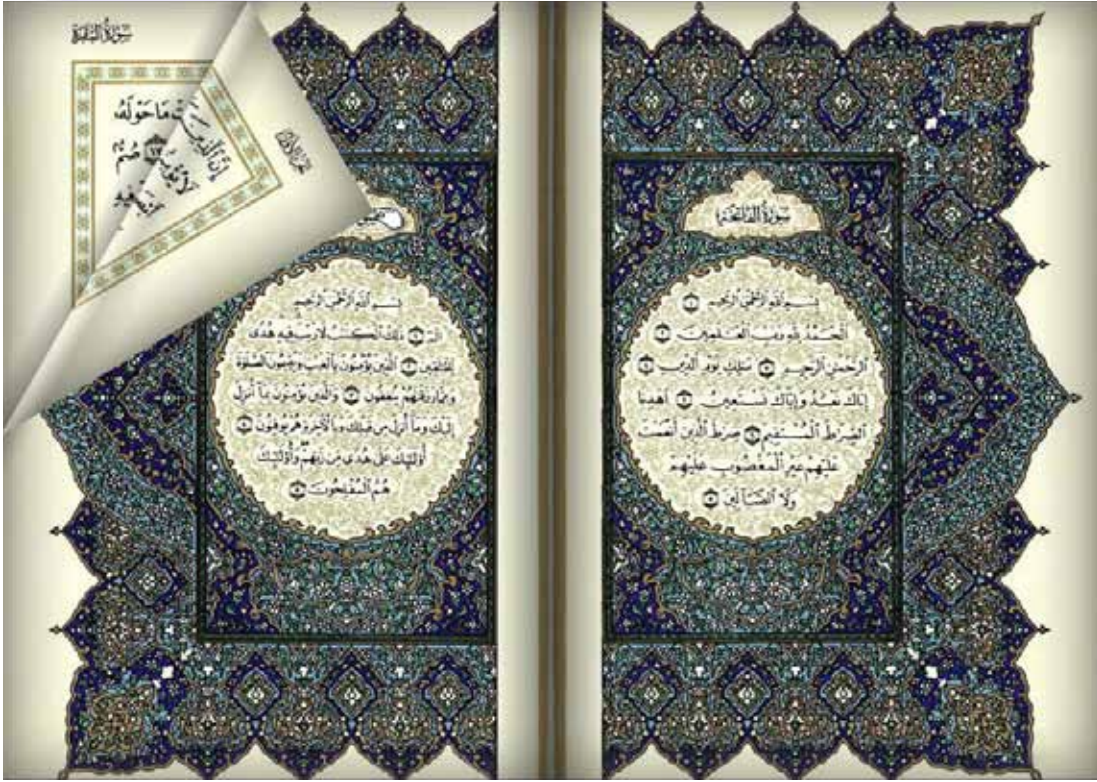 سورة الفاتحة
بسم الله الرحمن الرحيم ١
الحمد لله رب العلمين ٢
الرحمن الرحيم ٣ ملك يوم الدين ٤
إياك نعبد وإياك نستعين ٥ اهدنا
الصرط المستقيم ٦ صرط الذين أنعمت
عليهم غير المغضوب عليهم
ولا الضالين ٧
بسم الله الرحمن الرحيم
الم ١ ذلك الكتب لا ريب فيه هدى
للمتقين ٢ الذين يؤمنون بالغيب ويقيمون الصلوة
ومما رزقنهم ينفقون ٣ والذين يؤمنون بما أنزل
إليك وما أنزل من قبلك وبالآخرة هم يوقنون ٤
أولئك على هدى من ربهم وأولئك
هم المفلحون ٥
سورة البقرة
ما حوله
صم
إن الذين